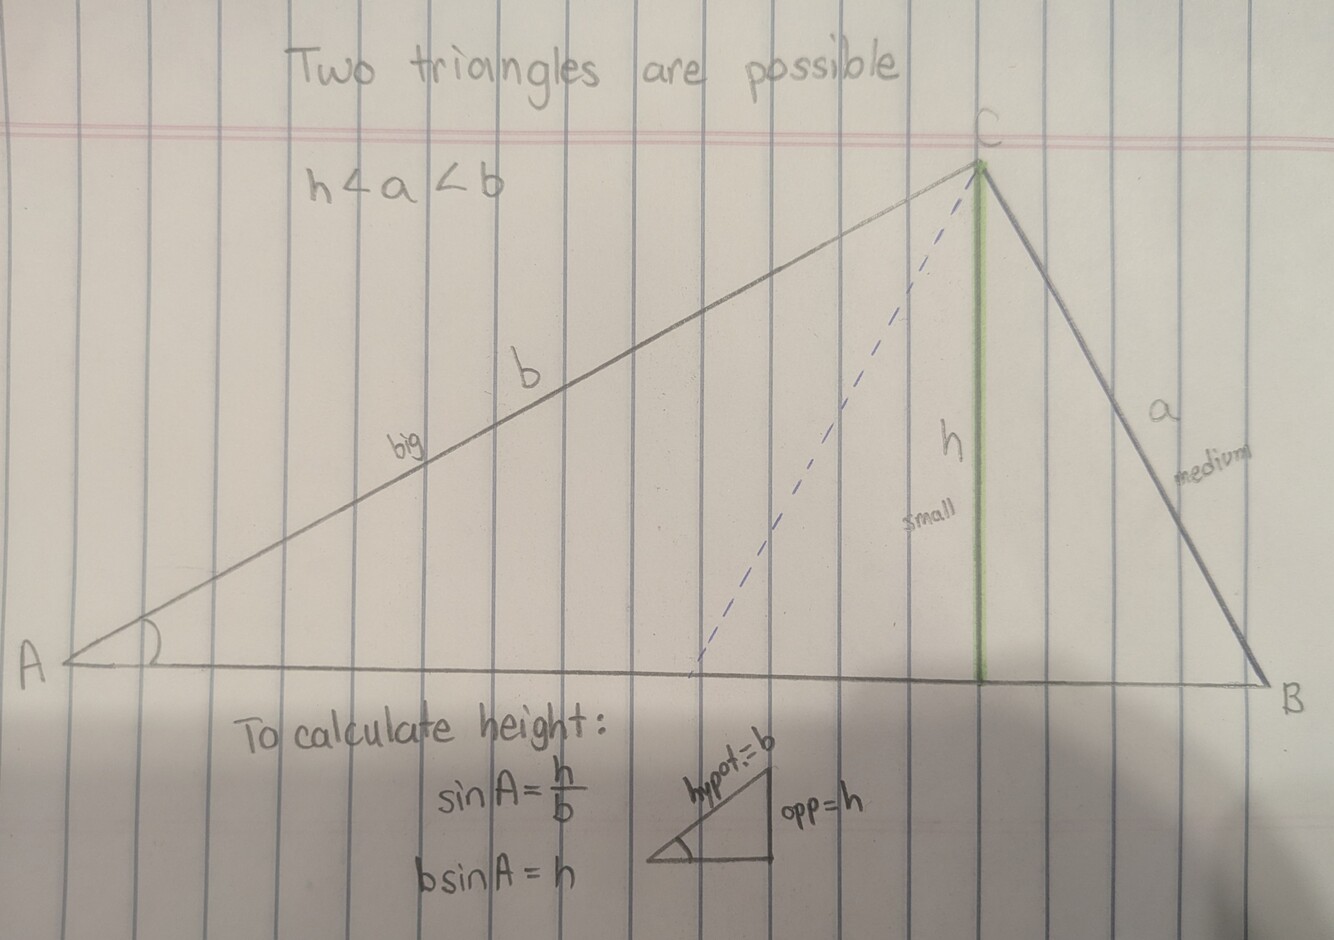 Two triangles are possible
C
h < a < b
b
big
a
h
medium
small
A
B
To calculate height:
sin A = h/b
b sin A = h
hypot. = b
opp = h